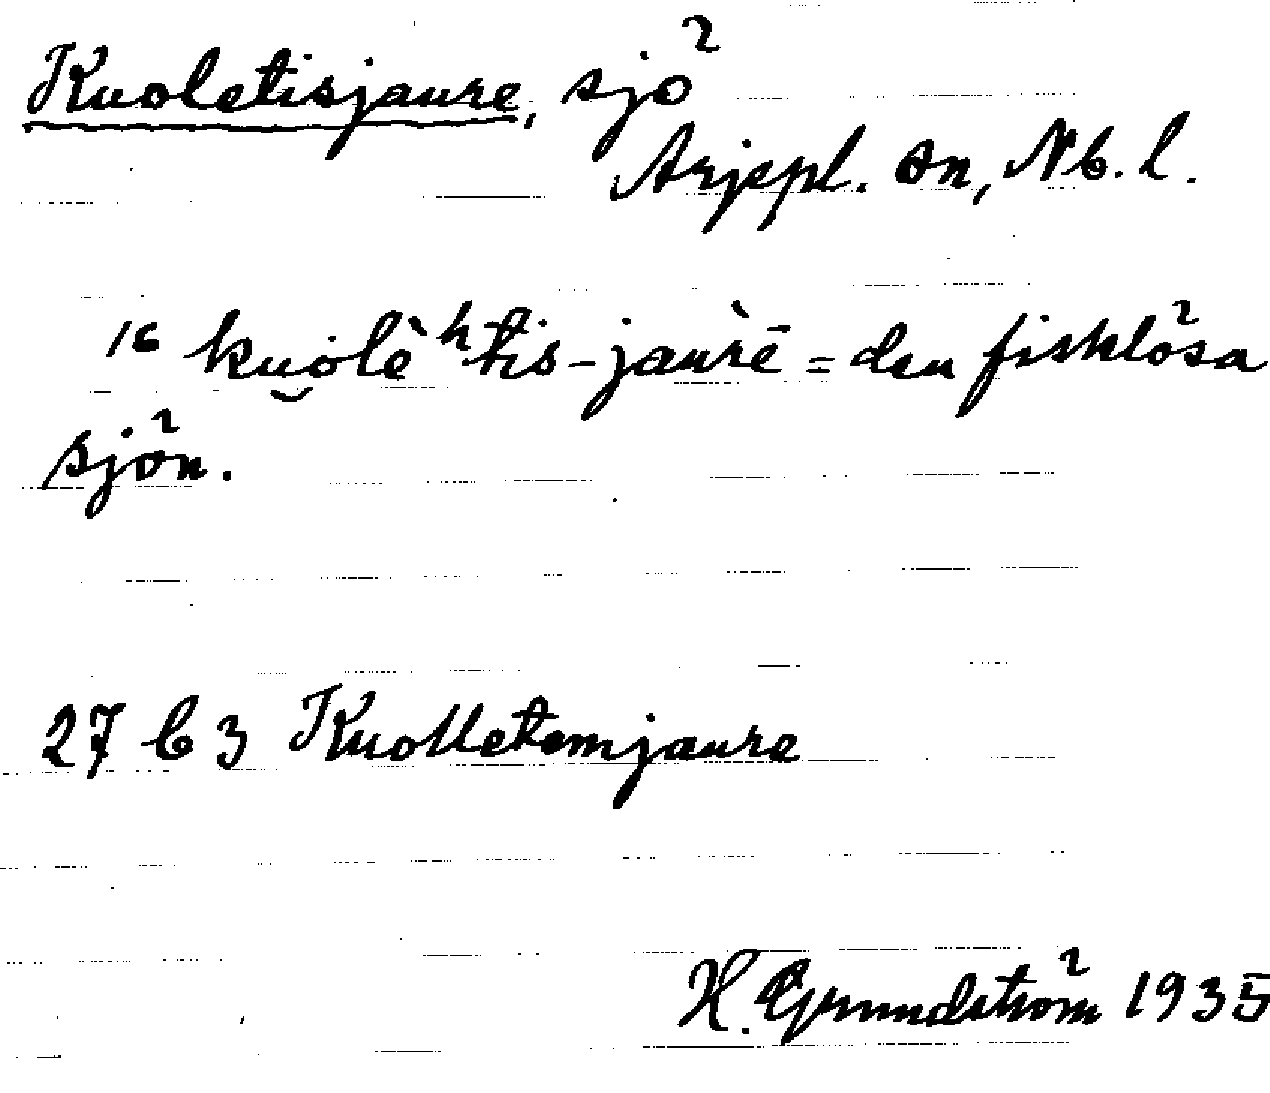 Kuoletisjaure, sjö
Arjepl. sn, Nb. l.
16 ku̯olèʰtis-jau̇rē = den fisklösa
sjön.
27 b 3 Kuolletemjaure
H. Grundström 1935